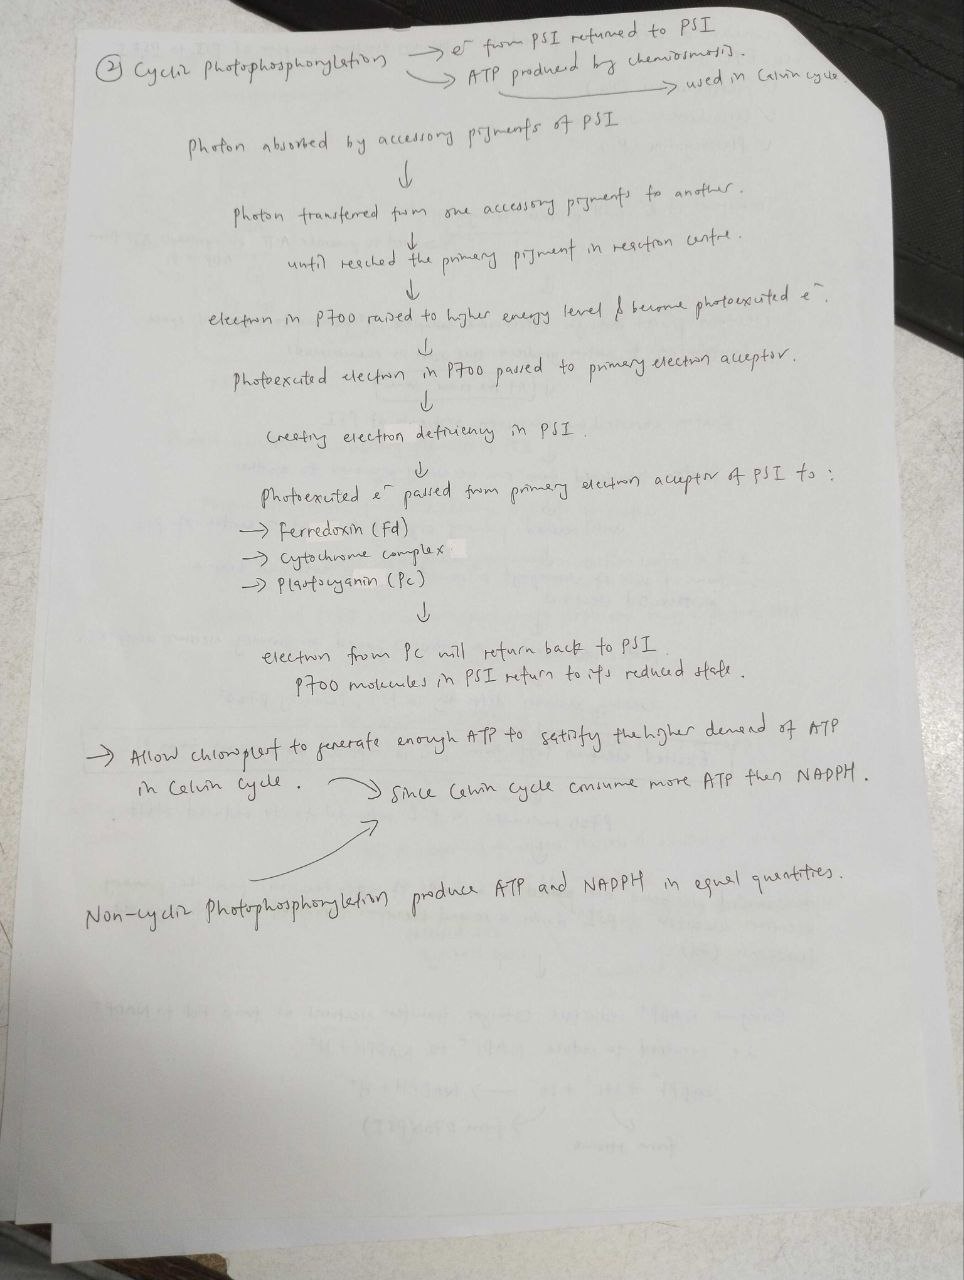 ② Cyclic Photophosphorylation → e⁻ from PSI returned to PSI
→ ATP produced by chemiosmosis.
→ used in Calvin cycle.
Photon absorbed by accessory pigments of PSI
↓
Photon transferred from one accessory pigments to another.
↓
until reached the primary pigment in reaction centre.
↓
electron in P700 raised to higher energy level & become photoexcited e⁻.
↓
Photoexcited electron in P700 passed to primary electron acceptor.
↓
Creating electron deficiency in PSI.
↓
Photoexcited e⁻ passed from primary electron acceptor of PSI to :
→ Ferredoxin (Fd)
→ Cytochrome complex
→ Plastocyanin (Pc)
↓
electron from Pc will return back to PSI.
P700 molecules in PSI return to its reduced state.
→ Allow chloroplast to generate enough ATP to satisfy the higher demand of ATP
in Calvin Cycle. → Since Calvin cycle consume more ATP than NADPH.
Non-cyclic Photophosphorylation produce ATP and NADPH in equal quantities.